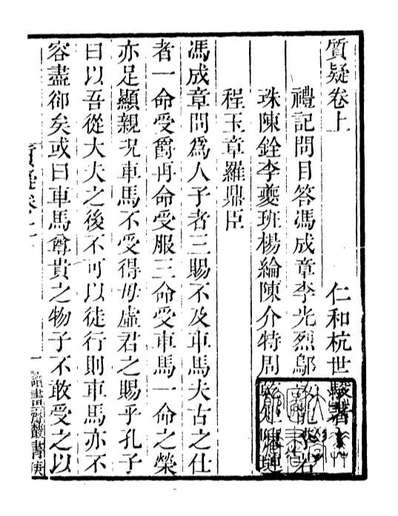 質疑卷上
仁和杭世駿著
禮記問目答馮成章李光烈鄔
珠陳銓李夔班楊綸陳介特周
程玉章羅鼎臣
馮成章問為人子者三賜不及車馬夫古之仕
者一命受爵再命受服三命受車馬一命之榮
亦足顯親况車馬不受得毋虛君之賜乎孔子
曰以吾從大夫之後不可以徒行則車馬亦不
容盡卻矣或曰車馬尊貴之物子不敢受之以
質疑卷上
一
讀畫齋叢書